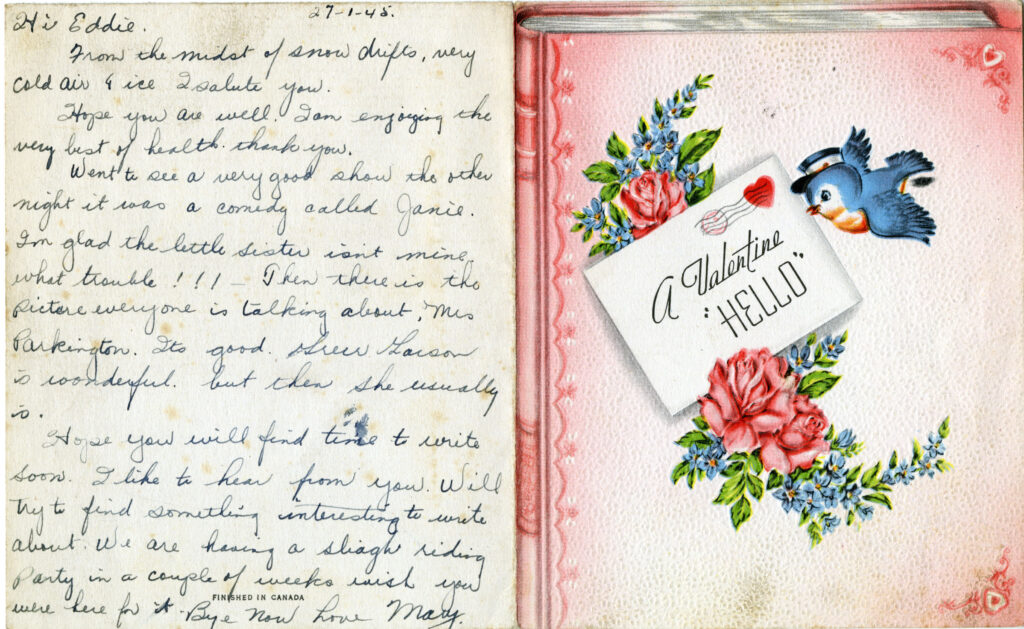 27-1-45.
Hi Eddie.
From the midst of snow drifts, very
cold air & ice I salute you.
Hope you are well. I am enjoying the
very best of health. thank you.
Went to see a very good show the other
night it was a comedy called Janie.
Im glad the little sister isnt mine
what trouble !!! – Then there is the
picture everyone is talking about, Mrs
Parkington. Its good. Greer Garson
is wonderful. but then she usually
is.
Hope you will find time to write
soon. I like to hear from you. Will
try to find something interesting to write
about. We are having a sliagh riding
Party in a couple of weeks wish you
were here for it. Bye Now Love Mary.
FINISHED IN CANADA
A Valentine
"HELLO"